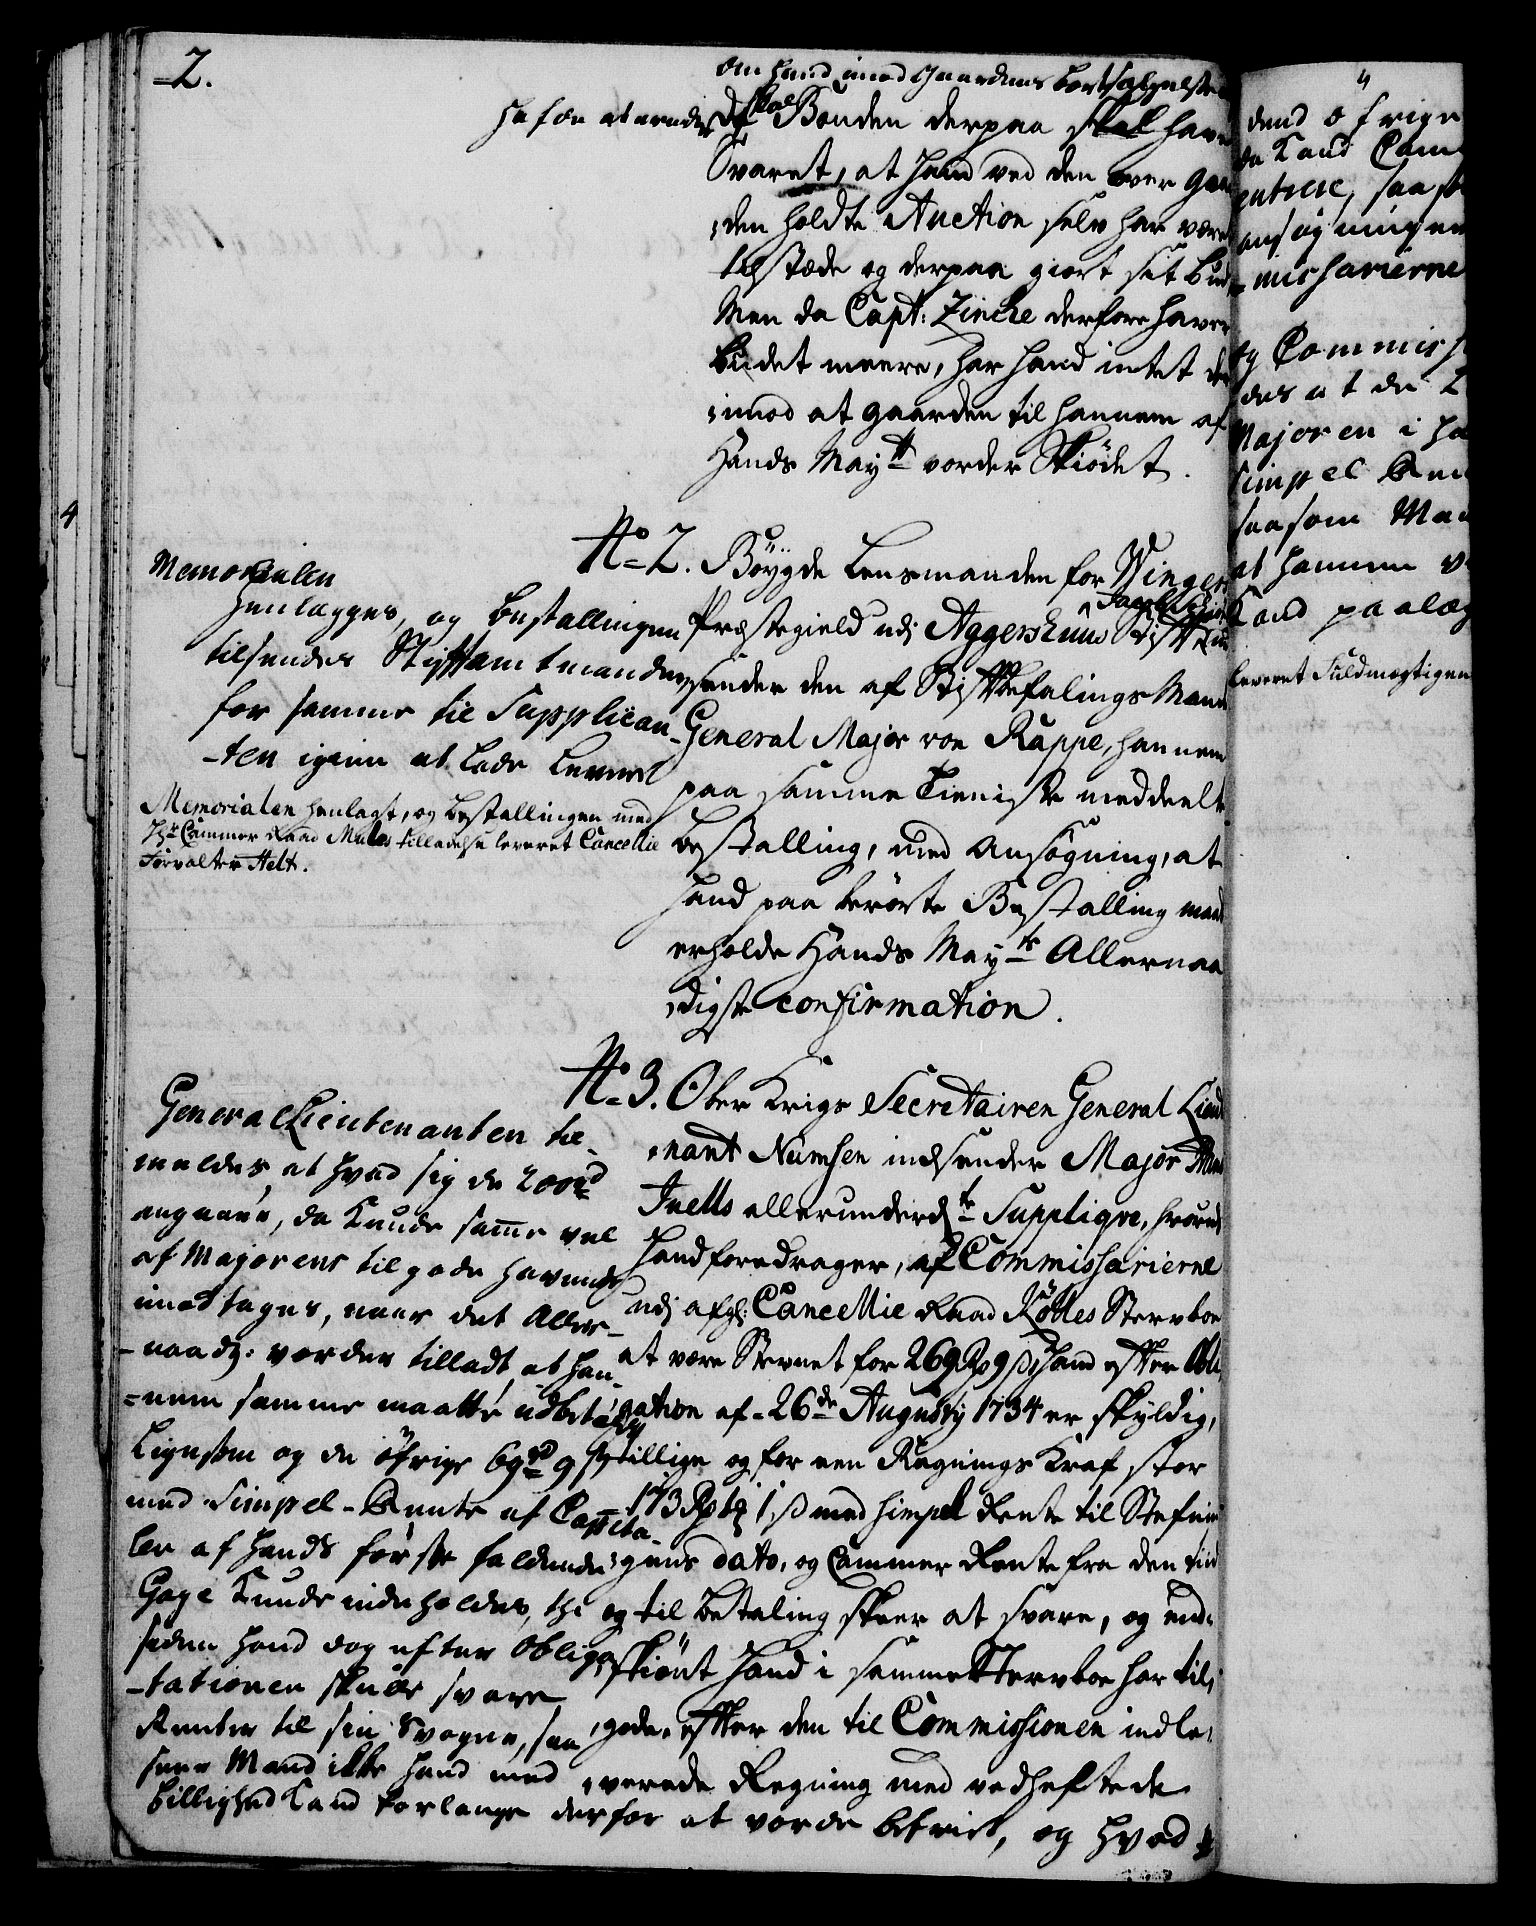 2.
om hand imod Gaardens bortsælgelse
hafde at erindre
Bonden derpaa skal have
Svaret, at hand ved den over gaar
den holdte Auction selv har været
tilstæde og derpaa giort sit bud
Men da Capt: Zincke derfore haver
budet meere, har hand intet der
imod at gaarden til hannem af
Hands Mayts vorder Skiødet.
No 2. Böygde Lensmanden for Winger
Præstegield udj Aggershuus Stift
sender den af Stiftbefalings Mand
General Major von Rappe, hannem
paa samme Tieniste meddeelte
bestalling, med Ansögning, at
hand paa berörte Bestalling maa
erholde Hands Mayts Allernaa
digste confirmation.
Memorialen
henlegges, og bestallingen
tilsendes Stiftamtmanden
for samme til Supplican-
ten igien at lade levere
Memorialen henlagt, og bestallingen med
Hr Cammer Raad Mules tilladelse leveret Cancellie
Forvalter Helt.
No 3. Ober Krigs Secretairen General Lieut
nant Numsen indsender Major
Juells allerunderdte Supplique, hvorudj
hand foredrager, af Commissarierne
udj afg: Cancellie Raad Röttes Stervboe
at være Stevnet for 269 Rd 9 s, hand efter Obli
gation af 26de Augusty 1734 er skyldig,
tillige og for een Regnings Kraf stor
173 Rd 1 s med simpel Rente til Stefnin
gens dato, og Cammer Rente fra den tiid
og til betaling skeer at svare, og end-
skiönt hand i samme Stervboe har til
gode, efter den til Commissionen indle-
verede Regning med vedheftede
General Lieutenanten til-
meldes, at hvad sig de 200 rd
angaaer, da kunde samme vel
af Majorens til gode havende
imodtages, naar det Aller-
naadg. vorder tilladt, at han-
nem samme maatte udbetales
Ligesom og de öfrige 69 rd 9 s
med Simpel-Rente af Capita-
len af hands förste faldende
Gage kunde indeholdes, thi
siden hand dog efter Obliga-
tationen skulle svare
Renter til sin Svoger, saa
seer Mand ikke hand med
billighed kand forlange derfor at vorde befriet, og hvad
4
dend öfrige
da kand Com
entrere, saa
ansögningen
missarierne
og Commiss
des at de
Majoren i
simpel Ren
saasom Man
at hannem
kand paalæg
leveret Fuldmegtigen
4